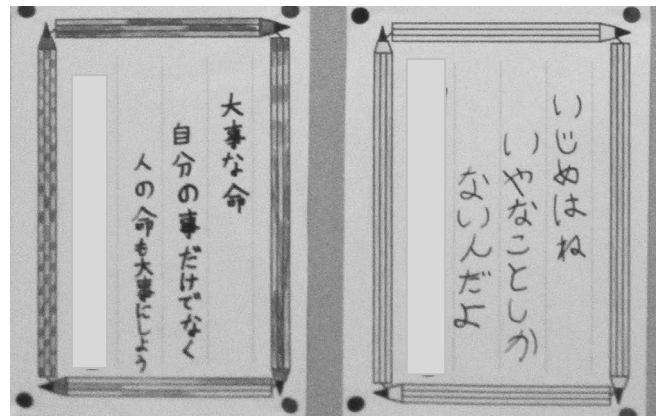 大事な命
自分の事だけでなく
人の命も大事にしよう
いじめはね
いやなことしか
ないんだよ